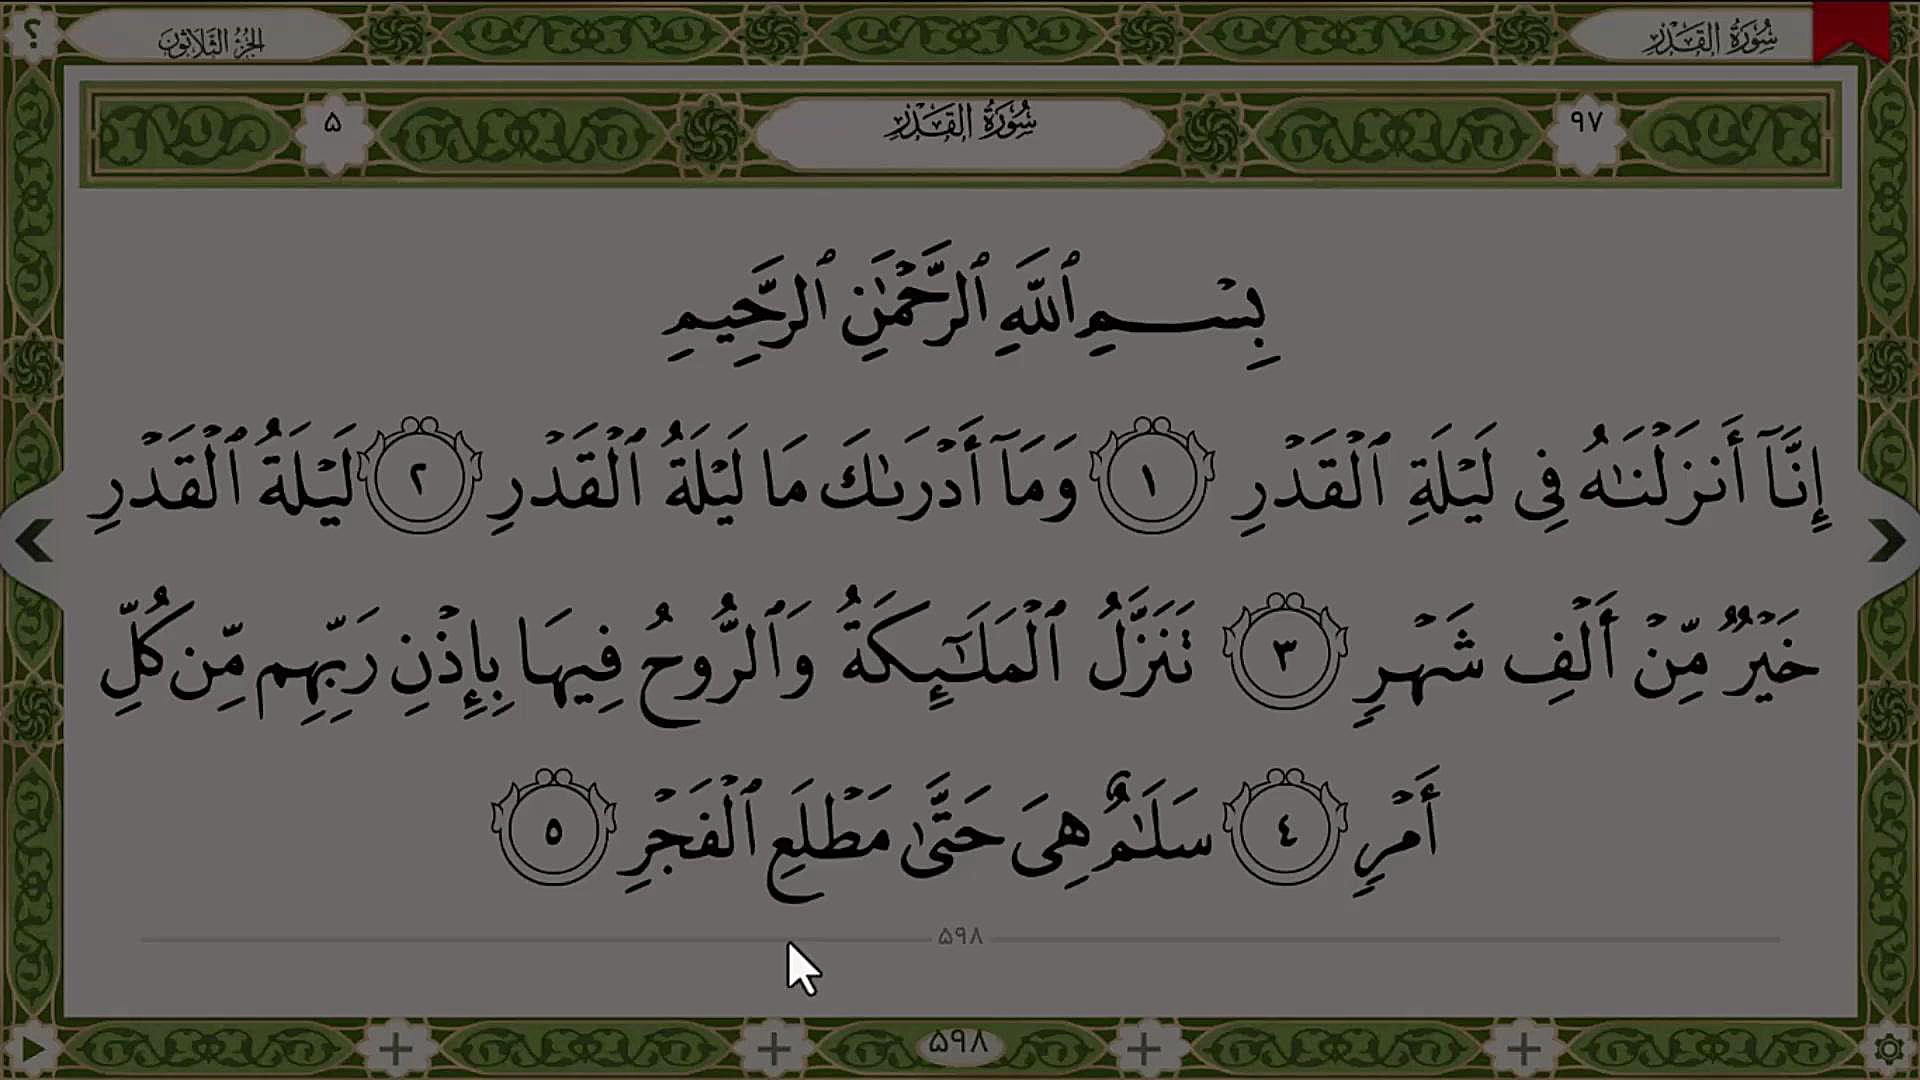 سُورَةُ القَدْرِ
الجُزءُ الثَّلاثُونَ
؟
۹۷
سُورَةُ القَدْرِ
۵
بِسْمِ ٱللَّهِ ٱلرَّحْمَٰنِ ٱلرَّحِيمِ
إِنَّآ أَنزَلْنَـٰهُ فِى لَيْلَةِ ٱلْقَدْرِ ١ وَمَآ أَدْرَىٰكَ مَا لَيْلَةُ ٱلْقَدْرِ ٢ لَيْلَةُ ٱلْقَدْرِ
خَيْرٌ مِّنْ أَلْفِ شَهْرٍ ٣ تَنَزَّلُ ٱلْمَلَـٰٓئِكَةُ وَٱلرُّوحُ فِيهَا بِإِذْنِ رَبِّهِم مِّن كُلِّ
أَمْرٍ ٤ سَلَـٰمٌ هِىَ حَتَّىٰ مَطْلَعِ ٱلْفَجْرِ ٥
۵۹۸
۵۹۸